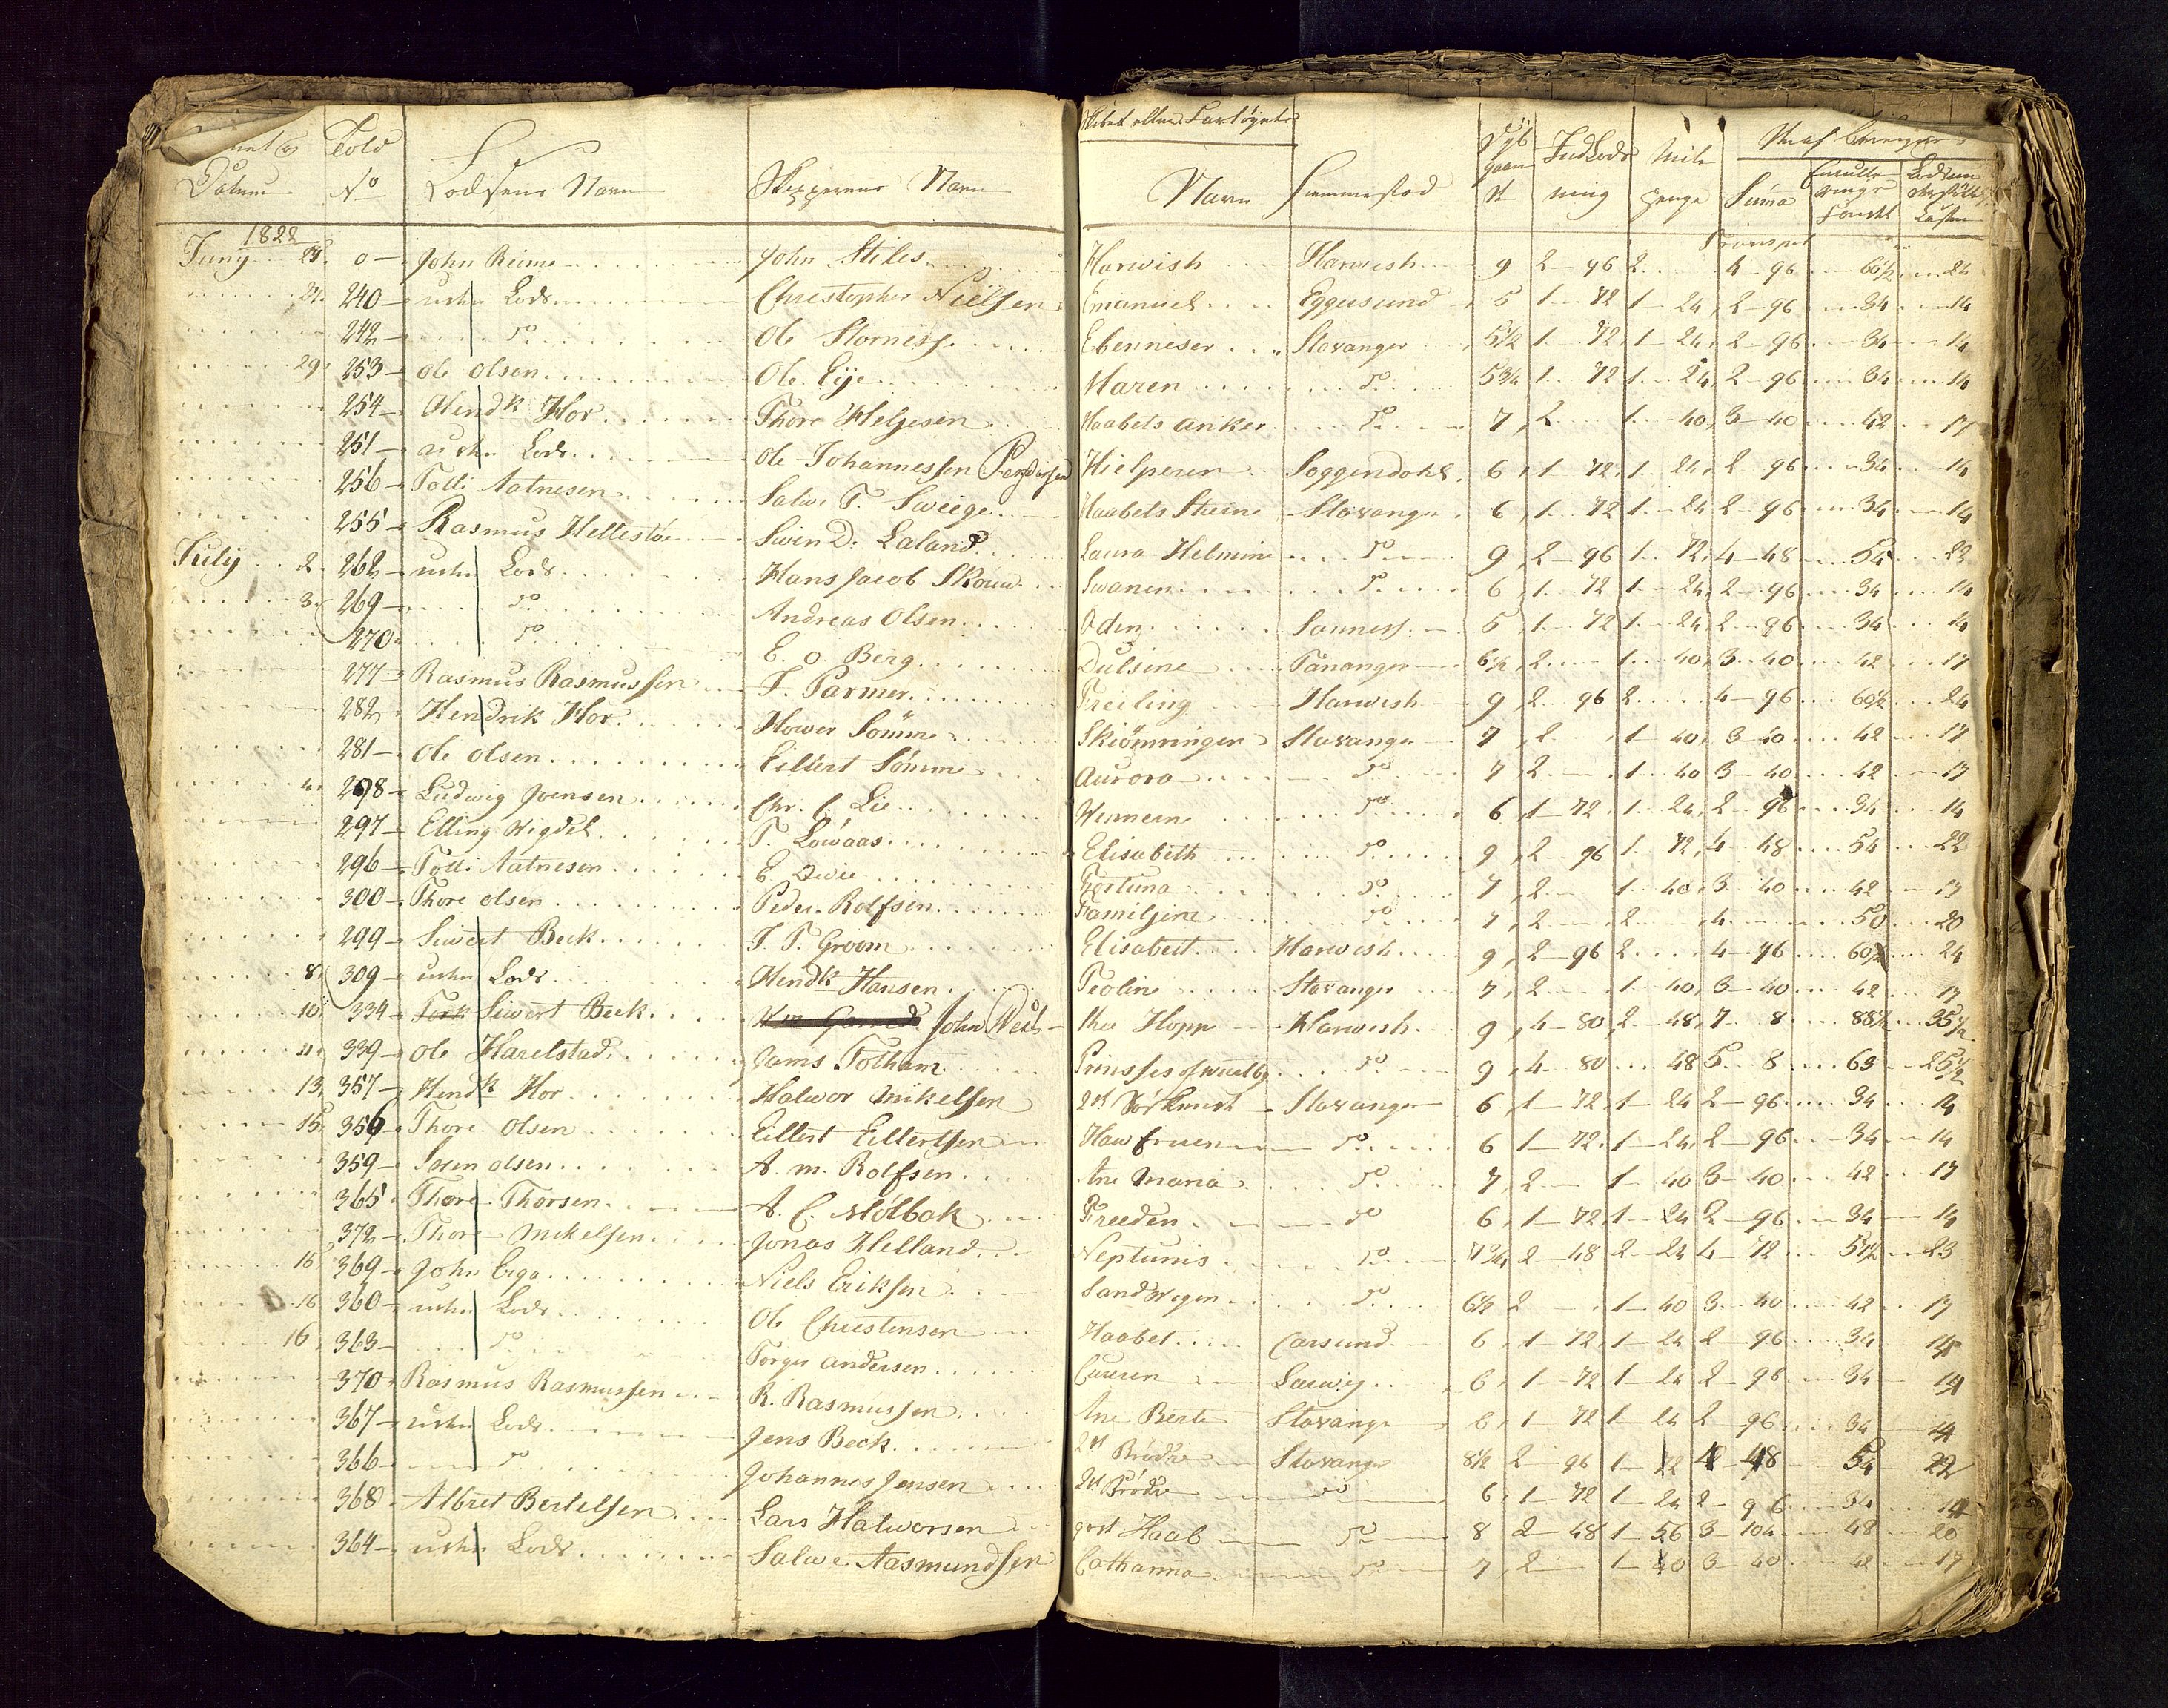 Told
Datum No Lodsens Navn Skipperens Navn Navn Hiemmestæd Indlods ning Mile penge Suma
1822
Juny 23. 0 — John Reime John Stiles Harwish Harwish 9 2 96 2 4 96 24
24. 240 — Lods Christopher Nielsen Emanuel Eggersund 5 1 72 1 24 2 96 34 14
242 — do Ole Storness Ebenneser Stavanger 5½ 1 72 1 24 2 96 34 14
29. 253 — Ole Olsen Ole Eye Maren do 5¾ 1 72 1 24 2 96 34 14
254 — Hendk Hor Thore Helgesen Haabets Anker do 7 2 1 40 3 40 42 17
251 — Lods Ole Johannessen Hielperen Soggendahl 6 1 72 1 24 2 96 34 14
256 — Tolli Aatnesen Salve T. Sveige Haabets Stierne Stavanger 6 1 72 1 24 2 96 34 14
255 — Rasmus Hellestøe Svend D. Laland Laura Helmine do 9 2 96 1 72 4 48 54 22
July 2. 262 — Lods Hans Jacob Skouw Swanen do 6 1 72 1 24 2 96 34 14
3. 269 — do Andreas Olsen Oden Sonness 5 1 72 1 24 2 96 34 14
270 do E. O. Berg Dulsine Tananger 6½ 2 1 40 3 40 42 17
277 — Rasmus Rasmussen T. Parmer Freiling Harwish 9 2 96 2 4 96 60½ 24
282 Hendrik Hor Hower Sömme Skiömringen Stavanger 7 2 1 40 3 40 42 17
281 — Ole Olsen Eillert Sömme Aurora do 7 2 1 40 3 40 42 17
4. 298 — Ludwig Joensen Chr. C. Lie do 6 1 72 1 24 2 96 34 14
297 — Elling Wigdel T. Lowaas Elisabeth do 9 2 96 1 72 4 48 54 22
296 — Tolli Aatnesen E. Fortuna do 7 2 1 40 3 40 42 17
300 — Thore Olsen Peder Rolfsen Familjene do 7 2 2 4 50 20
299 — Siwert Beck J. T. Groom Elisabeet Harwish 9 2 96 2 4 96 60½ 24
8. 309 — Lods Hendk Hansen Teoline Stavanger 7 2 1 40 3 40 42 17
10. 334 Siwert Beck John the Hopp Harwish 9 4 80 2 48 7 8 88½ 35½
11. 339 — Ole Harelstad Jams Totham Prinsses of do 9 4 80 48 5 8 63 25½
13. 357 — Hendk Hor Halwor Mikelsen Stavanger 6 1 72 1 24 2 96 34 14
15. 356 — Thore Olsen Eillert Eillertsen Hawfruen do 6 1 72 1 24 2 96 34 14
359 — Soren Olsen A. M. Rolfsen Ane Maria do 7 2 1 40 3 40 42 17
365 Thore Thorsen A. C. Mölbak Freeden do 6 1 72 1 24 2 96 34 14
372 — Thore Mikelsen Jonas Helland Neptunis do 7¾ 2 48 2 24 4 72 57½ 23
15 369 — John Erga Niels Eriksen Sandwegen do 6½ 2 1 40 3 40 42 17
16 360 — Lods Ole Christensen Haabet Carsund 6 1 72 1 24 2 96 34 14
16 363 — do Torger Andersen Laurvig 6 1 72 1 24 2 96 34 14
370 Rasmus Rasmussen R. Rasmussen Ane Berte Stavanger 6 1 72 1 24 2 96 34 14
367 — Lods Jens Beck Brödre Stavanger 8½ 2 96 1 72 4 48 54 22
366 — do Johannes Jensen Brödre do 6 1 72 1 24 2 96 34 14
368 — Albret Bertelsen Lars Halworsen Haab do 8 2 48 1 56 3 104 48 20
364 — Lods Salve Aasmundsen Cathanna do 7 2 1 40 3 40 42 17